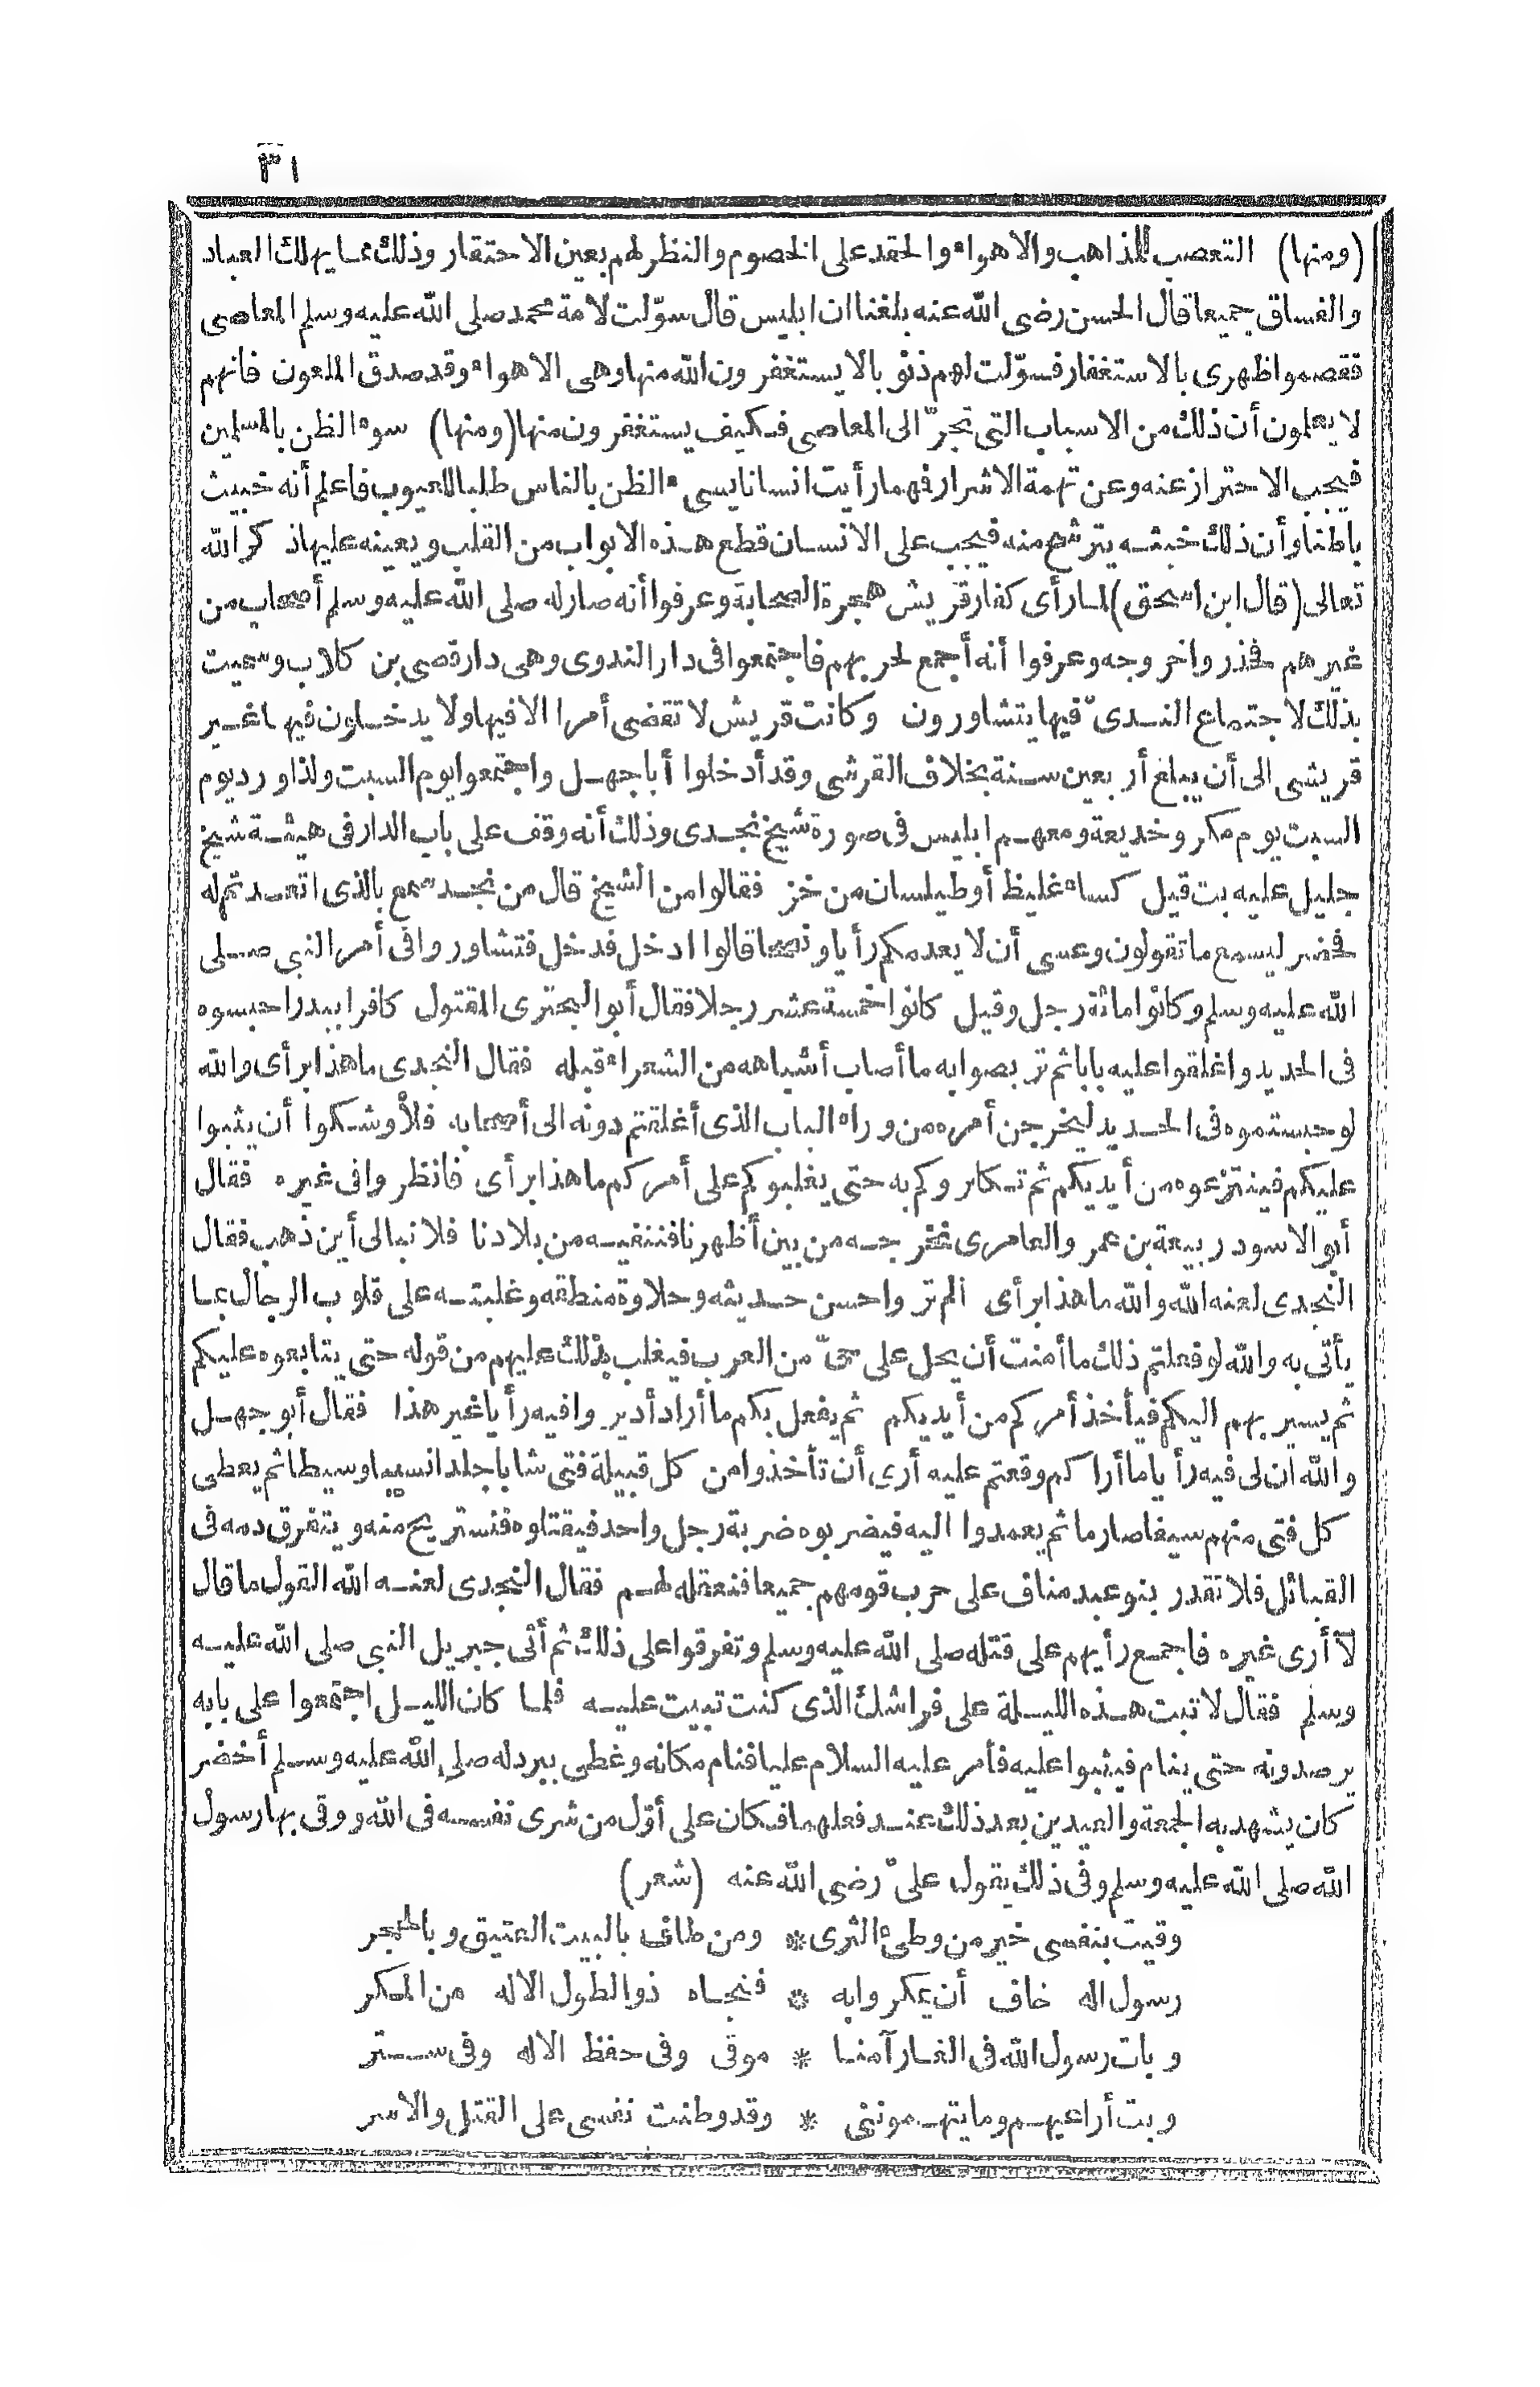 ٣١
(ومنها) التعصب للمذاهب والاهواء والحقد على الخصوم والنظر لهم بعين الاحتقار وذلك مما يهلك العباد
والفساق جميعا قال الحسن رضى الله عنه بلغنا ان ابليس قال سوّلت لأمة محمد صلى الله عليه وسلم المعاصى
فقصموا ظهرى بالاستغفار فسوّلت لهم ذنوبا لا يستغفرون الله منها وهى الاهواء وقد صدق الملعون فانهم
لا يعلمون أن ذلك من الاسباب التى تجرّ الى المعاصى فكيف يستغفرون منها (ومنها) سوء الظن بالمسلمين
فيجب الاحتراز عنه وعن تهمة الاشرار فهما رأيت انسانا يسىء الظن بالناس طلبا للعيوب فاعلم أنه خبيث
باطنا وأن ذلك خبثه يترشح منه فيجب على الانسان قطع هذه الابواب من القلب ويعينه عليها ذكر الله
تعالى (قال ابن اسحق) لما رأى كفار قريش هجرة الصحابة وعرفوا أنه صار له صلى الله عليه وسلم أصحاب من
غيرهم فحذروا خروجه وعرفوا أنه أجمع لحربهم فاجتمعوا فى دار الندوى وهى دار قصى بن كلاب وسميت
بذلك لاجتماع الندىّ فيها يتشاورون وكانت قريش لا تقضى أمرا الا فيها ولا يدخلون فيها غير
قريشى الى أن يبلغ أربعين سنة بخلاف القرشى وقد أدخلوا أبا جهل واجتمعوا يوم السبت ولذا ورد يوم
السبت يوم مكر وخديعة ومعهم ابليس فى صورة شيخ نجدى وذلك أنه وقف على باب الدار فى هيئة شيخ
جليل عليه بت قيل كساء غليظ أو طيلسان من خز فقالوا من الشيخ قال من نجد سمع بالذى اتعدتم له
فحضر ليسمع ما تقولون وعسى أن لا يعدمكم رأيا ونصحا قالوا ادخل فدخل فتشاوروا فى أمر النبى صلى
الله عليه وسلم وكانوا مائة رجل وقيل كانوا خمسة عشر رجلا فقال أبو البخترى المقتول كافرا ببدر احبسوه
فى الحديد واغلقوا عليه بابا ثم تربصوا به ما أصاب أشباهه من الشعراء قبله فقال النجدى ما هذا برأى والله
لو حبستموه فى الحديد ليخرجن أمره من وراء الباب الذى أغلقتم دونه الى أصحابه فلأوشكوا أن يثبوا
عليكم فينتزعوه من أيديكم ثم تكاثروكم به حتى يغلبوكم على أمركم ما هذا برأى فانظروا فى غيره فقال
أبو الاسود ربيعة بن عمرو العامرى نخرجه من بين أظهرنا فننفيه من بلادنا فلا نبالى أين ذهب فقال
النجدى لعنه الله والله ما هذا برأى ألم تروا حسن حديثه وحلاوة منطقه وغلبته على قلوب الرجال بما
يأتى به والله لو فعلتم ذلك ما أمنت أن يحل على حىّ من العرب فيغلب بذلك عليهم من قوله حتى يتابعوه عليكم
ثم يسير بهم اليكم فيأخذ أمركم من أيديكم ثم يفعل بكم ما أراد أديروا فيه رأيا غير هذا فقال أبو جهل
والله ان لى فيه رأيا ما أراكم وقعتم عليه أرى أن تأخذوا من كل قبيلة فتى شابا جلدا نسيبا وسيطا ثم يعطى
كل فتى منهم سيفا صارما ثم يعمدوا اليه فيضربوه ضربة رجل واحد فيقتلوه فنستريح منه ويتفرق دمه فى
القبائل فلا تقدر بنو عبد مناف على حرب قومهم جميعا فنعقله لهم فقال النجدى لعنه الله القول ما قال
لا أرى غيره فاجمع رأيهم على قتله صلى الله عليه وسلم وتفرقوا على ذلك ثم أتى جبريل النبى صلى الله عليه
وسلم فقال لا تبت هذه الليلة على فراشك الذى كنت تبيت عليه فلما كان الليل اجتمعوا على بابه
يرصدونه حتى ينام فيثبوا عليه فأمر عليه السلام عليا فنام مكانه وغطى ببرد له صلى الله عليه وسلم أخضر
كان يشهد به الجمعة والعيدين بعد ذلك عند فعلهما فكان على أوّل من شرى نفسه فى الله ووقى بها رسول
الله صلى الله عليه وسلم وفى ذلك يقول علىّ رضى الله عنه (شعر)
وقيت بنفسى خير من وطىء الثرى * ومن طاف بالبيت العتيق وبالحجر
رسول اله خاف أن يمكروا به * فنجاه ذو الطول الاله من المكر
وبات رسول الله فى الغار آمنا * موقى وفى حفظ الاله وفى ستر
وبت أراعيهم وما يتهموننى * وقد وطنت نفسى على القتل والاسر